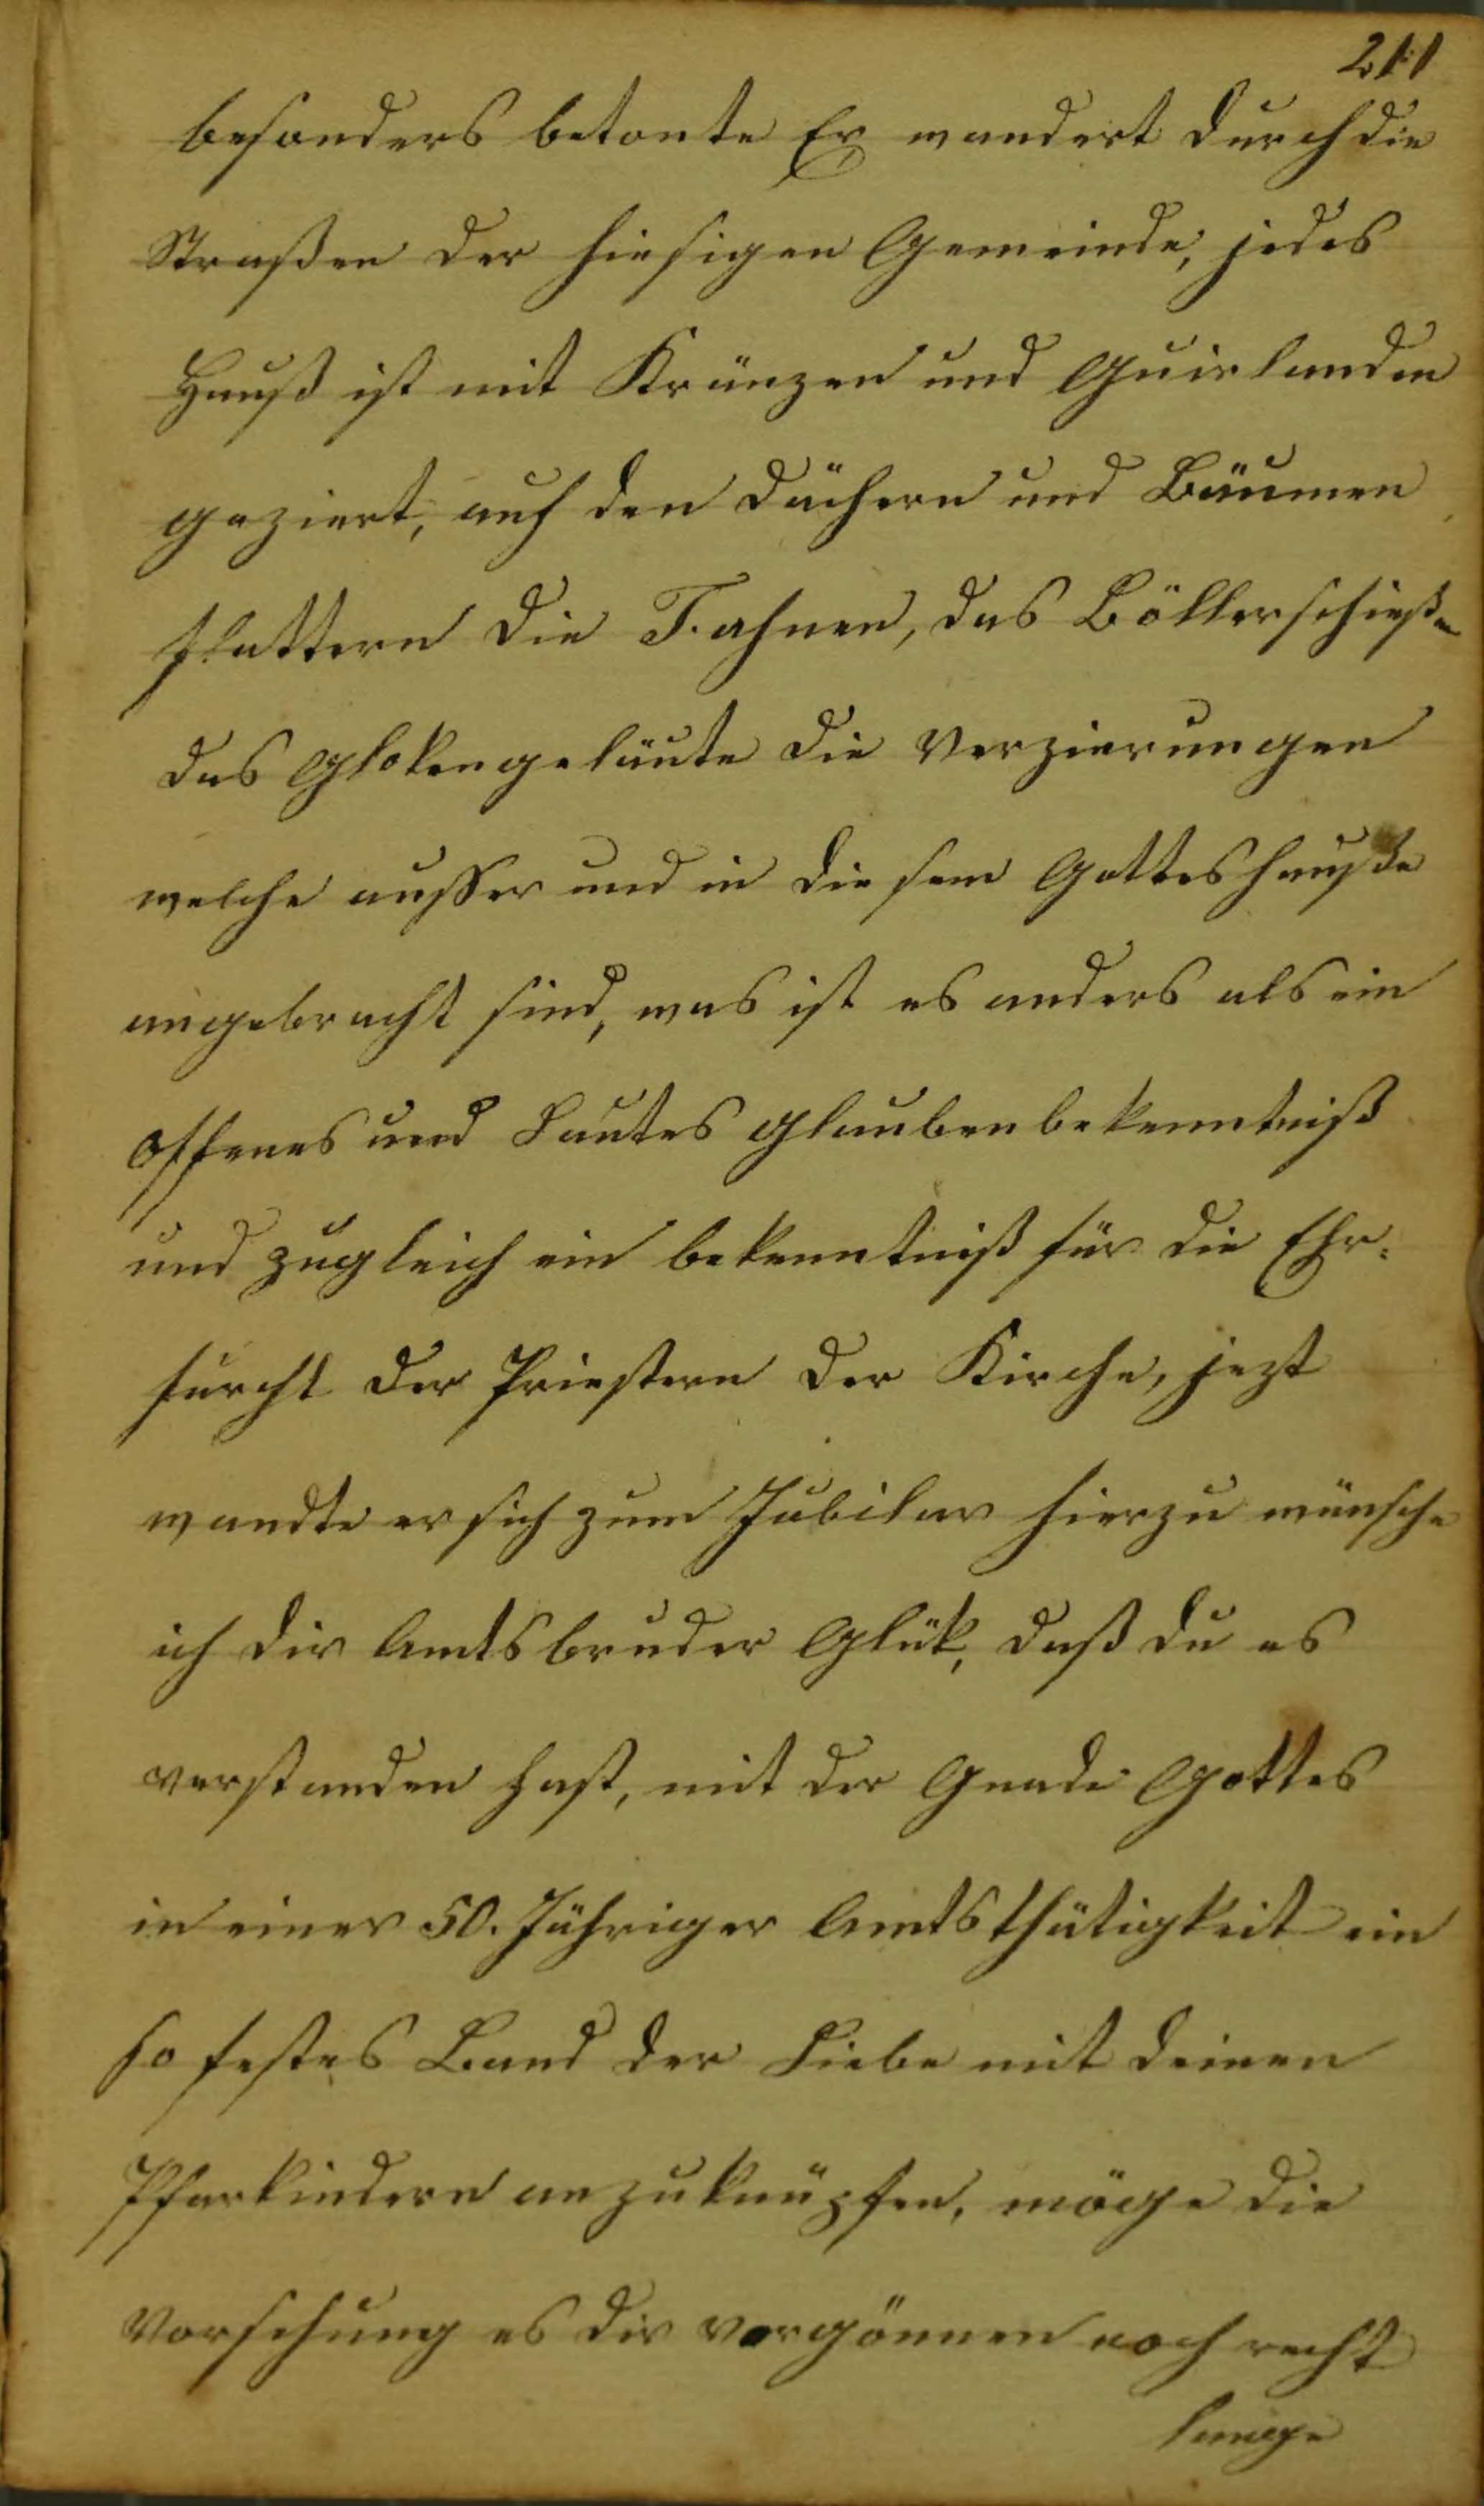 211
besonders betonte Er wandert durch die
Straßen der hiesigen Gemeinde, jedes
Hauß ist mit Kränzen und Guirlanden
geziert, auf den Dächern und Bäumen
flattern die Fahnen, das Böllerschießen
das Glokengeläute die Verzierungen
welche ausser und in diesem Gotteshauße
angebracht sind, was ist es anders als ein
offenes und Lautes Glaubenbekenntniß
und zugleich ein bekenntniß für die Ehr-
furcht der Priestern der Kirche, jezt
wandte er sich zum Jubilar hierzu wünsche
ich dir Amtsbruder Glük, daß du es
verstanden hast, mit der Gnade Gottes
in einer 50. Jähriger Amtsthätigkeit ein
so festes Band der Liebe mit deinen
Pfarkindern anzuknüpfen, möge die
Vorsehung es dir vergönnen noch recht
lange